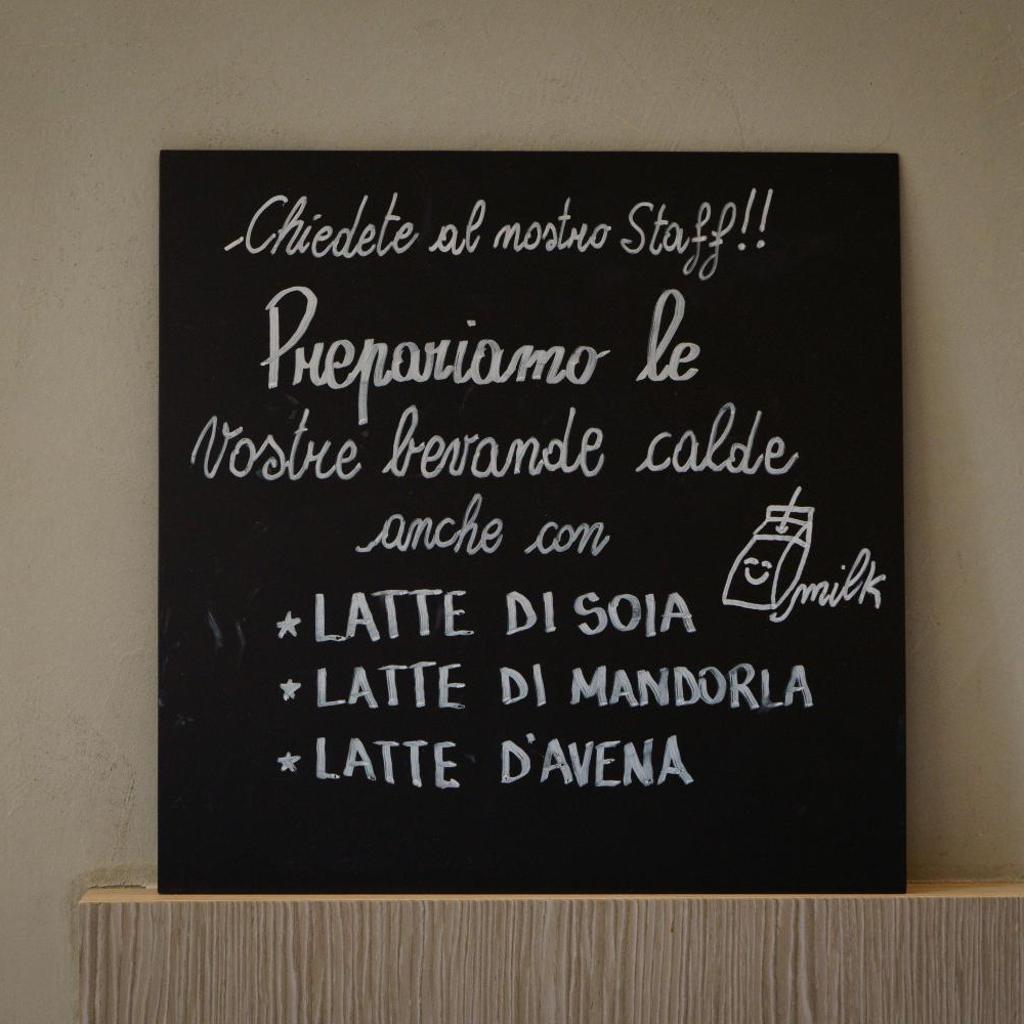 Chiedete al nostro Staff!!
Prepariamo le
vostre bevande calde
anche con
milk
* LATTE DI SOIA
* LATTE DI MANDORLA
* LATTE D'AVENA